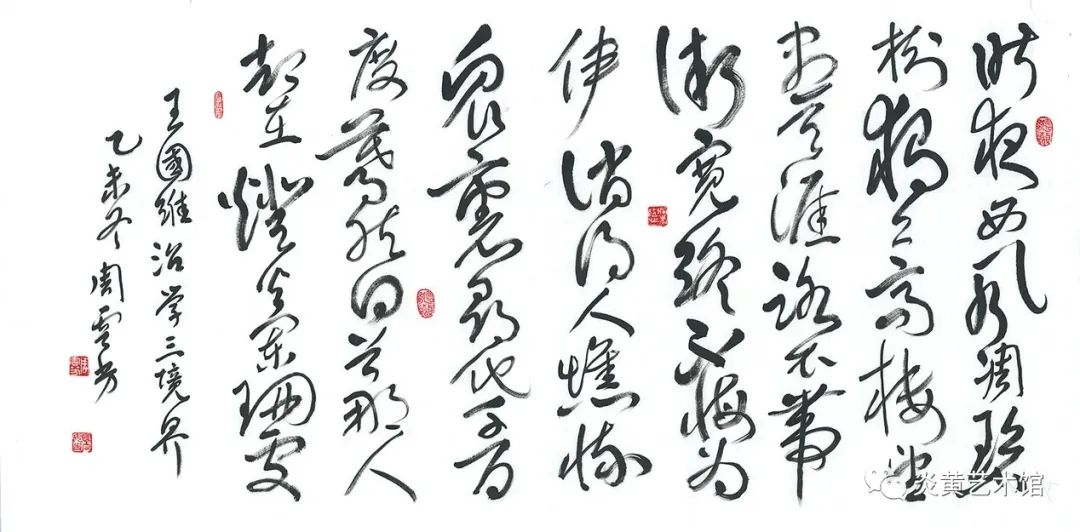 昨夜西风凋碧
树獨上高楼望
尽天涯路衣带
渐宽终不悔为
伊消得人憔悴
众裏寻他千百
度蓦然回首那人
却在燈火阑珊处
王國維治学三境界
乙未冬周雲芳
炎黄艺术馆